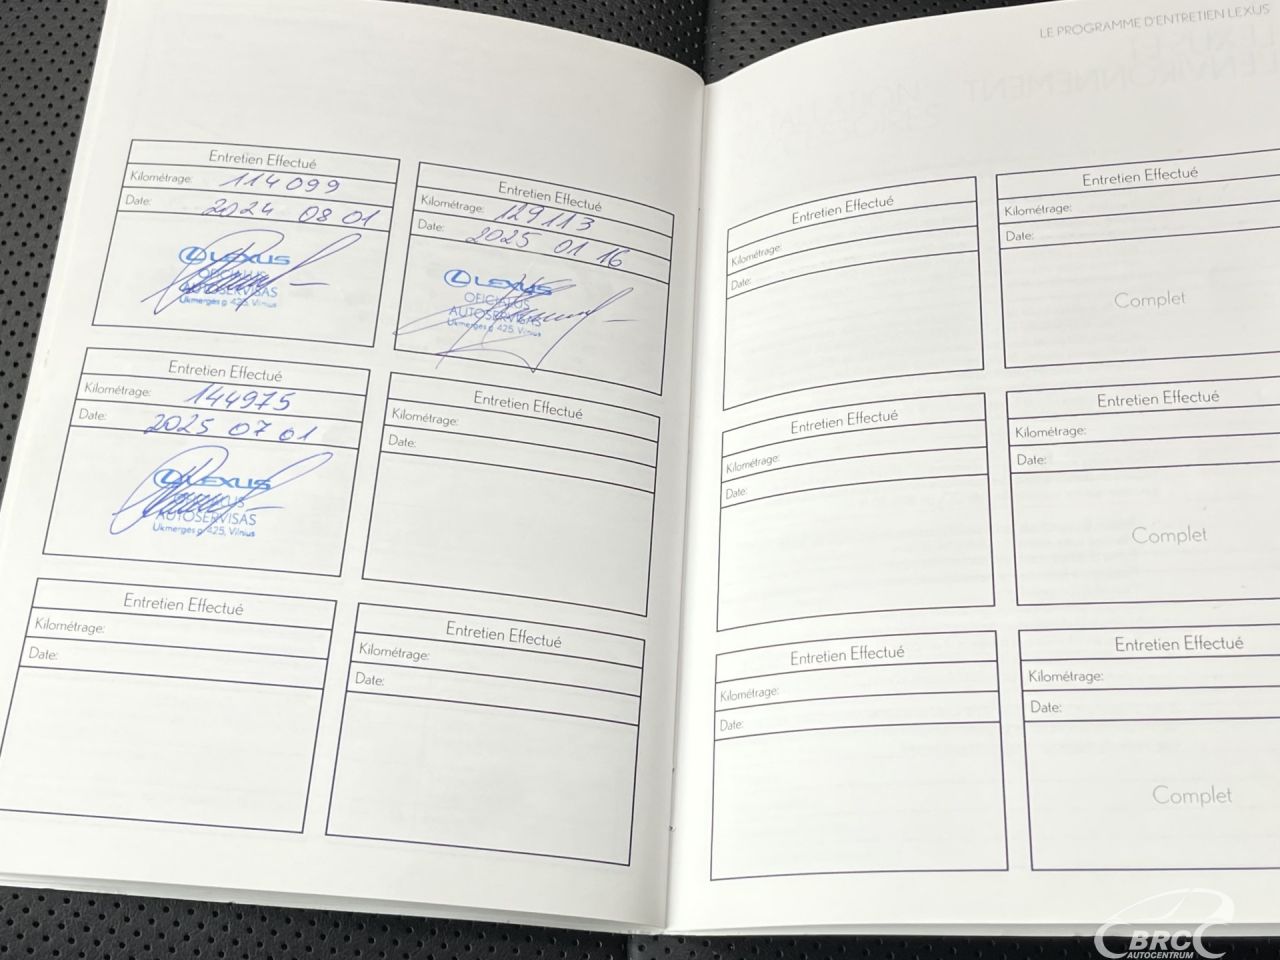 LE PROGRAMME D'ENTRETIEN LEXUS
Entretien Effectué
Kilométrage: 114099
Date: 2024 08 01
LEXUS
OFICIALUS
AUTOSERVISAS
Ukmergės g. 425, Vilnius
Entretien Effectué
Kilométrage: 129113
Date: 2025 01 16
LEXUS
OFICIALUS
AUTOSERVISAS
Ukmergės g. 425, Vilnius
Entretien Effectué
Kilométrage: 144975
Date: 2025 07 01
LEXUS
AUTOSERVISAS
Ukmergės g. 425, Vilnius
Entretien Effectué
Kilométrage:
Date:
Entretien Effectué
Kilométrage:
Date:
Entretien Effectué
Kilométrage:
Date:
Entretien Effectué
Kilométrage:
Date:
Entretien Effectué
Kilométrage:
Date:
Complet
Entretien Effectué
Kilométrage:
Date:
Entretien Effectué
Kilométrage:
Date:
Complet
Entretien Effectué
Kilométrage:
Date:
Entretien Effectué
Kilométrage:
Date:
Complet
BRC
AUTOCENTRUM